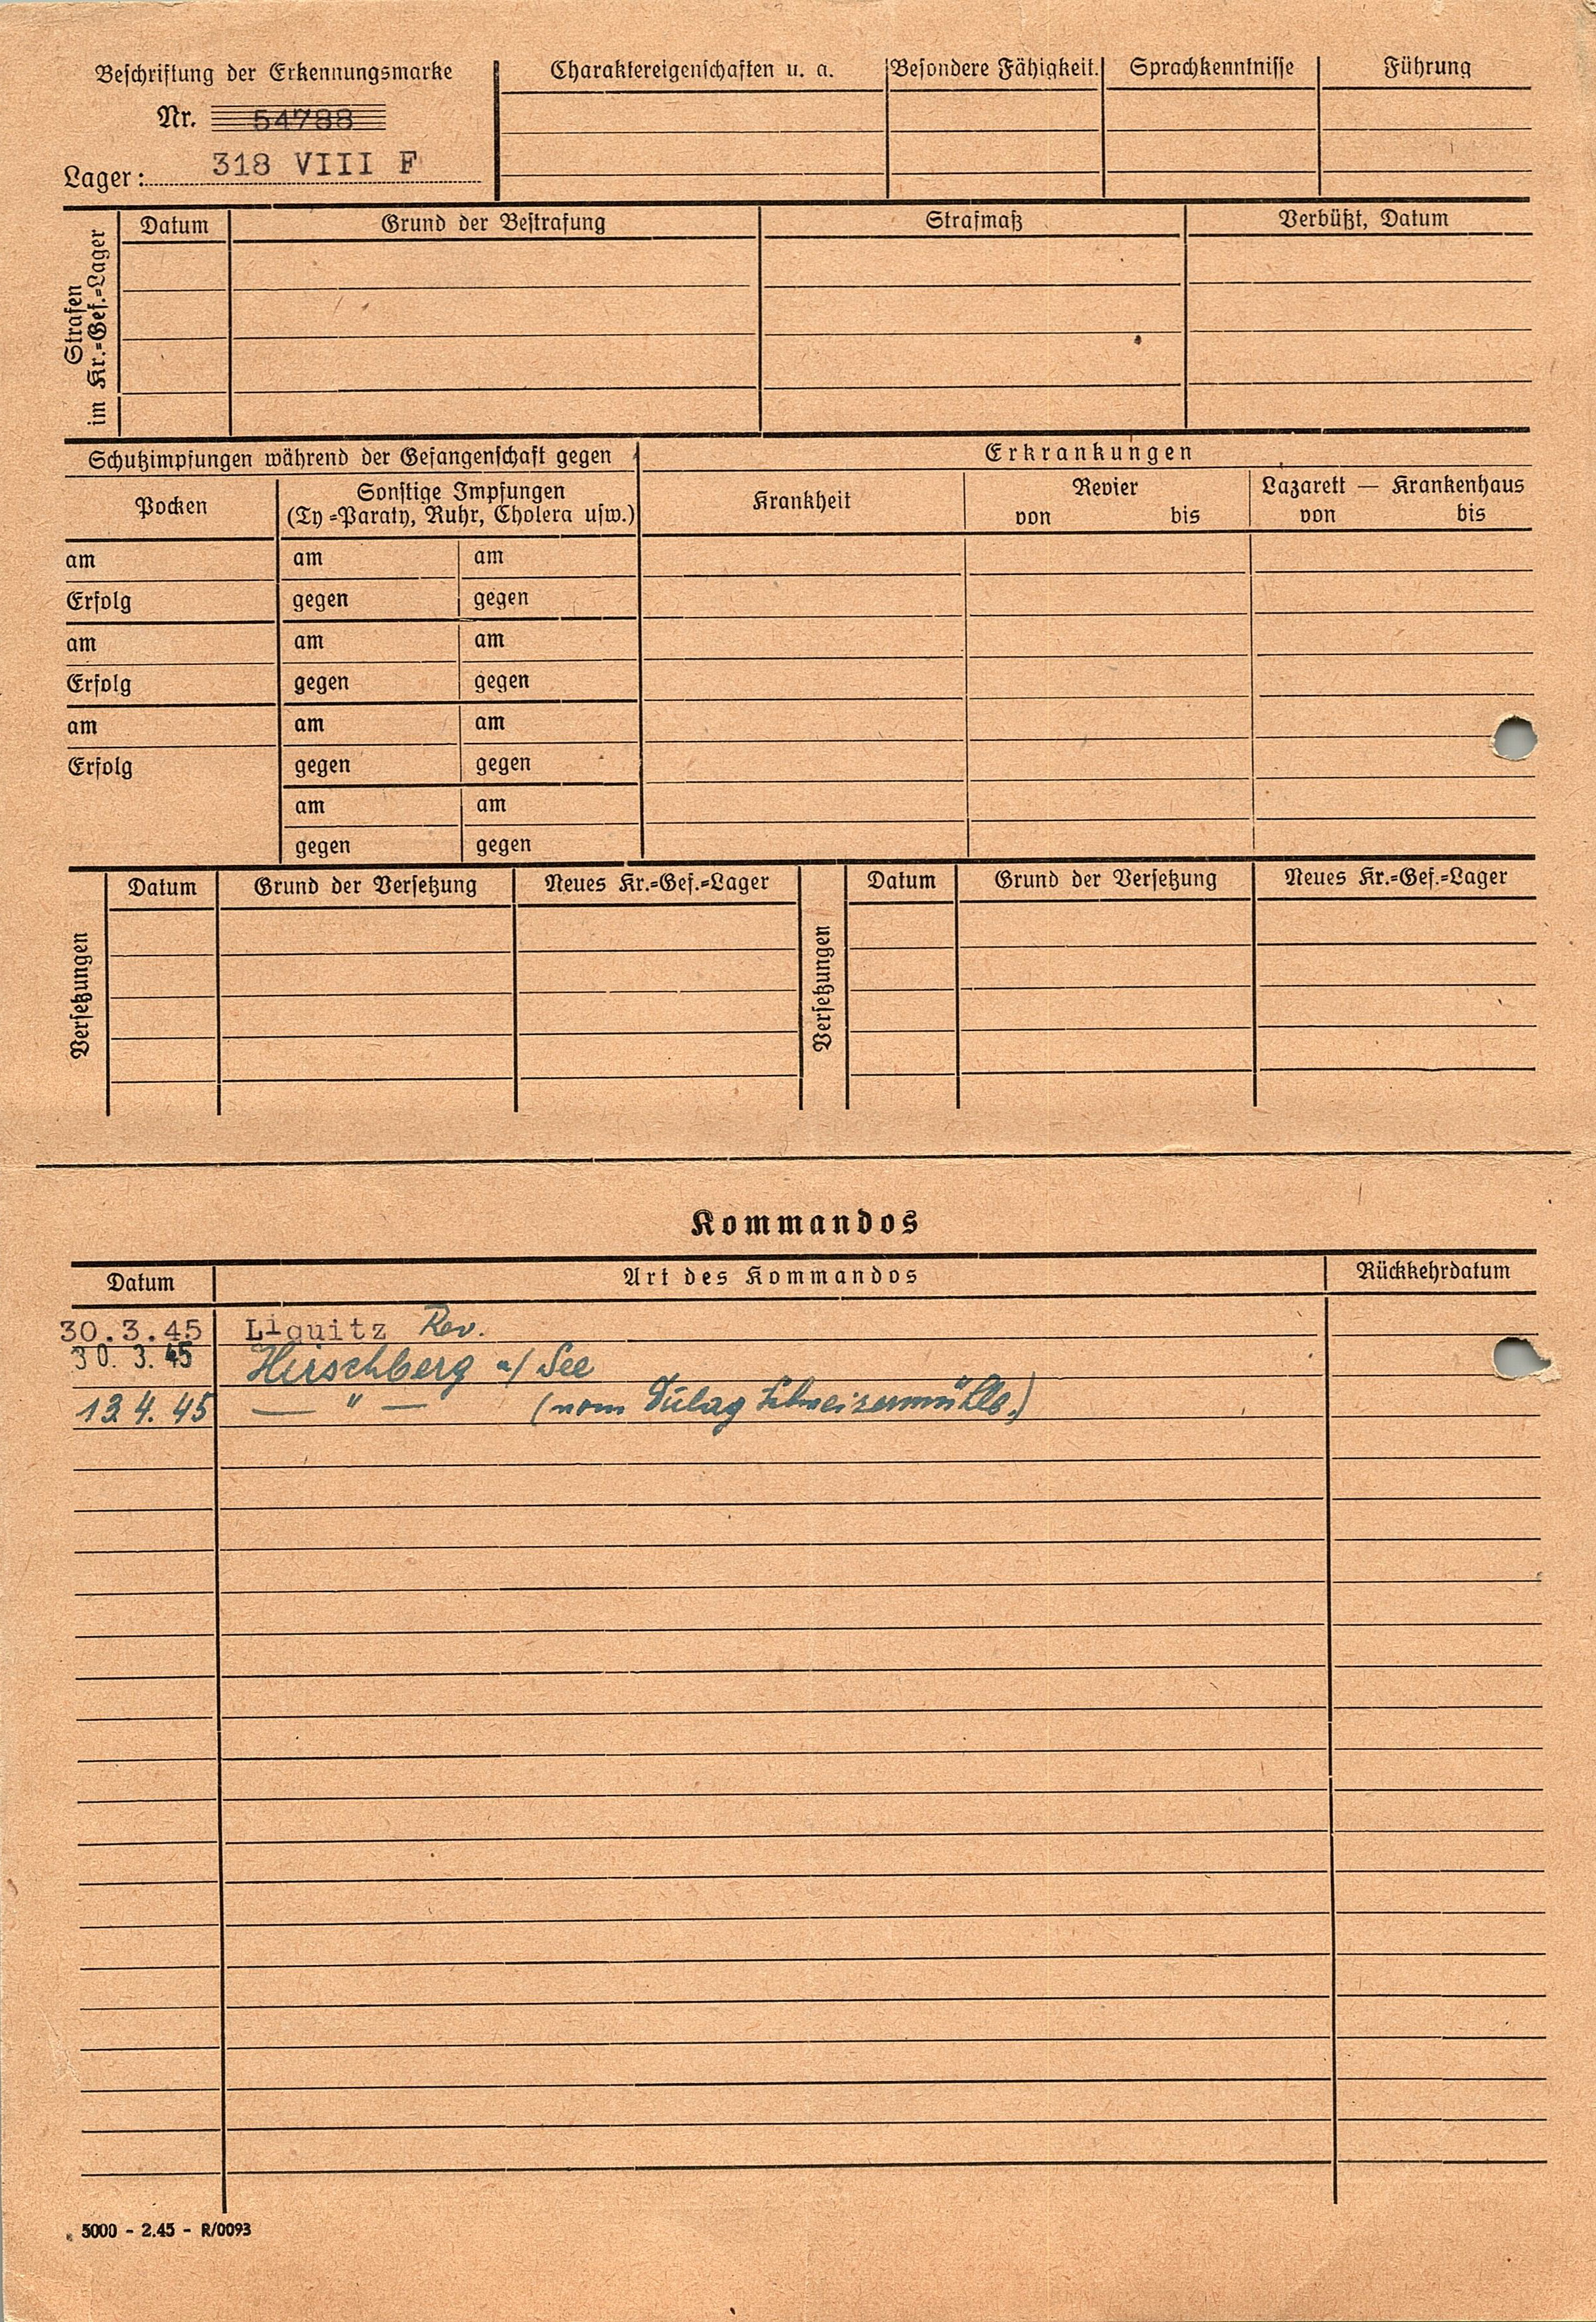 Beschriftung der Erkennungsmarke
Nr. 54788
Lager: 318 VIII F
Charaktereigenschaften u. a. Besondere Fähigkeit. Sprachkenntnisse Führung
Strafen im Kr.=Gef.=Lager
Datum Grund der Bestrafung Strafmaß Verbüßt, Datum
Schutzimpfungen während der Gefangenschaft gegen
Erkrankungen
Pocken
Sonstige Impfungen
(Ty=Paraty, Ruhr, Cholera usw.)
Krankheit
Revier
von bis
Lazarett — Krankenhaus
von bis
am am am
Erfolg gegen gegen
am am am
Erfolg gegen gegen
am am am
Erfolg gegen gegen
am am
gegen gegen
Versetzungen
Datum Grund der Versetzung Neues Kr.=Gef.=Lager
Versetzungen
Datum Grund der Versetzung Neues Kr.=Gef.=Lager
Kommandos
Datum Art des Kommandos Rückkehrdatum
30.3.45 Liguitz Rev.
30. 3. 45 Hirschberg a/ See
13.4.45 — " — (vom Dulag Schweizermühle.)
5000 - 2.45 - R/0093